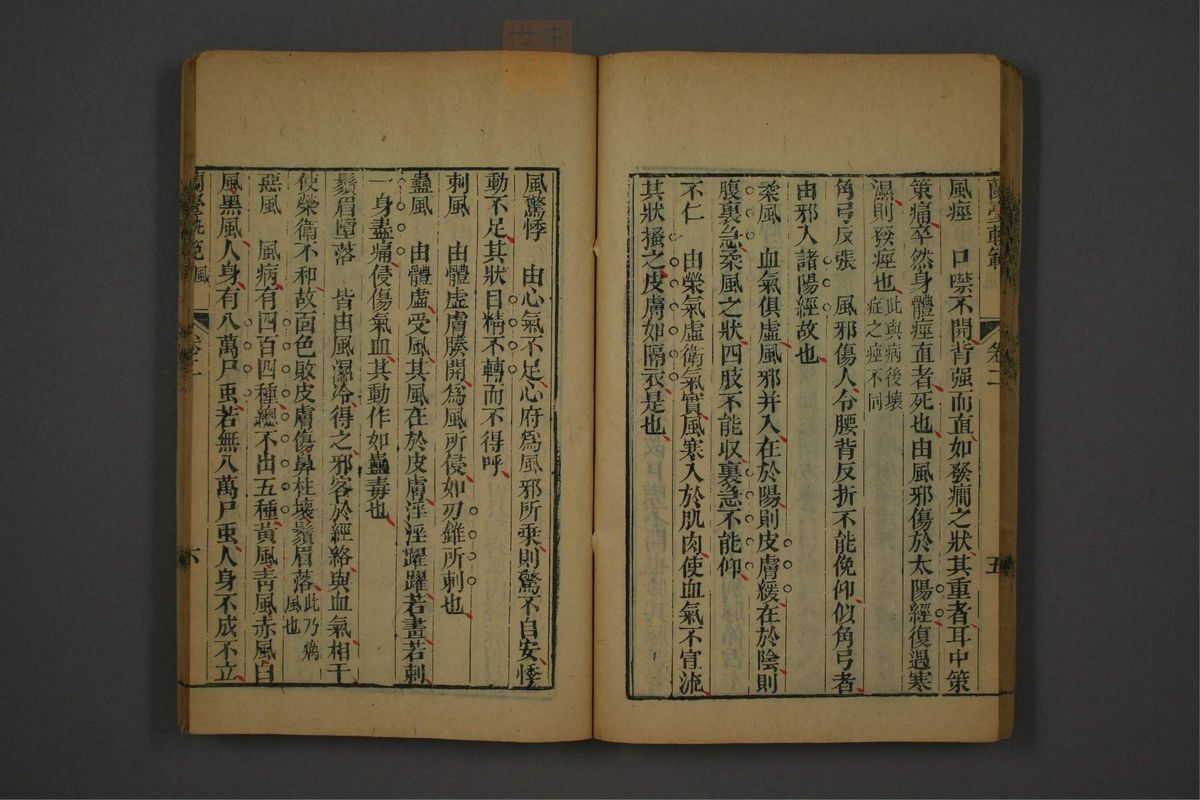 蘭臺軌範 卷二 五
風痙 口噤不開背强而直如發癇之狀其重者耳中策
策痛卒然身體痙直者死也由風邪傷於太陽經復遇寒
濕則發痙也此與病後壞症之痙不同
角弓反張 風邪傷人令腰背反折不能俛仰似角弓者
由邪入諸陽經故也
柔風 血氣俱虛風邪并入在於陽則皮膚緩在於陰則
腹裏急柔風之狀四肢不能收裏急不能仰
不仁 由榮氣虛衛氣實風寒入於肌肉使血氣不宣流
其狀搔之皮膚如隔衣是也
風驚悸 由心氣不足心府爲風邪所乘則驚不自安悸
動不足其狀目精不轉而不得呼
刺風 由體虛膚腠開爲風所侵如刃錐所刺也
蠱風 由體虛受風其風在於皮膚淫淫躍躍若畫若刺
一身盡痛侵傷氣血其動作如蠱毒也
鬚眉墮落 皆由風濕冷得之邪客於經絡與血氣相干
使榮衛不和故面色敗皮膚傷鼻柱壞鬚眉落此乃癘風也
惡風 風病有四百四種總不出五種黃風靑風赤風白
風黑風人身有八萬尸䖝若無八萬尸䖝人身不成不立
蘭臺軌範 風 卷二 六